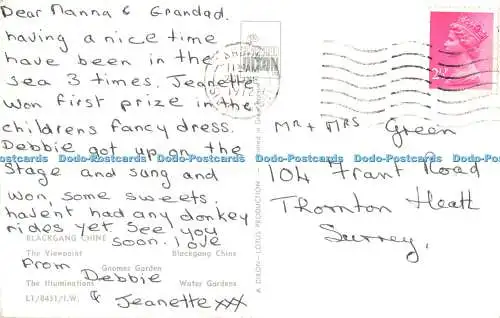 Dear Nanna & Grandad.
having a nice time
have been in the
sea 3 times. Jeanette
won first prize in the
childrens fancy dress.
Debbie got up on the
stage and sang and
won, some sweets.
havent had any donkey
rides yet. See you
soon. love
From Debbie
& Jeanette xxx
BLACKGANG CHINE
The Viewpoint Blackgang Chine
Gnomes Garden
The Illuminations Water Gardens
LT/8451/I.W.
A DIXON - LOTUS PRODUCTION
Mr + Mrs Green
104 Frant Road
Thornton Heath
Surrey.
Dodo-Postcards Dodo-Postcards Dodo-Postcards Dodo-Postcards Dodo-Postcards Dodo-Postcards Dodo-Postcards